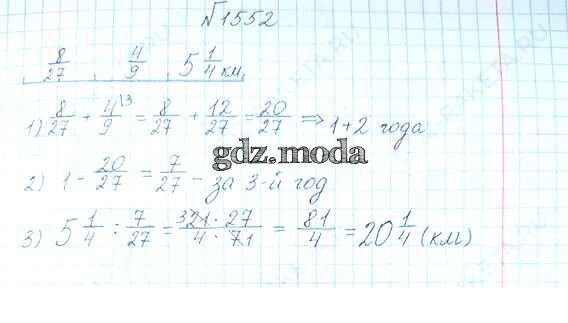 №1552
8/27 4/9 5 1/4 км
1) 8/27 + 4/9 \3 = 8/27 + 12/27 = 20/27 ⇒ 1+2 года
gdz.moda
2) 1 - 20/27 = 7/27 - за 3-й год
3) 5 1/4 : 7/27 = 321·27/4·71 = 81/4 = 20 1/4 (км)